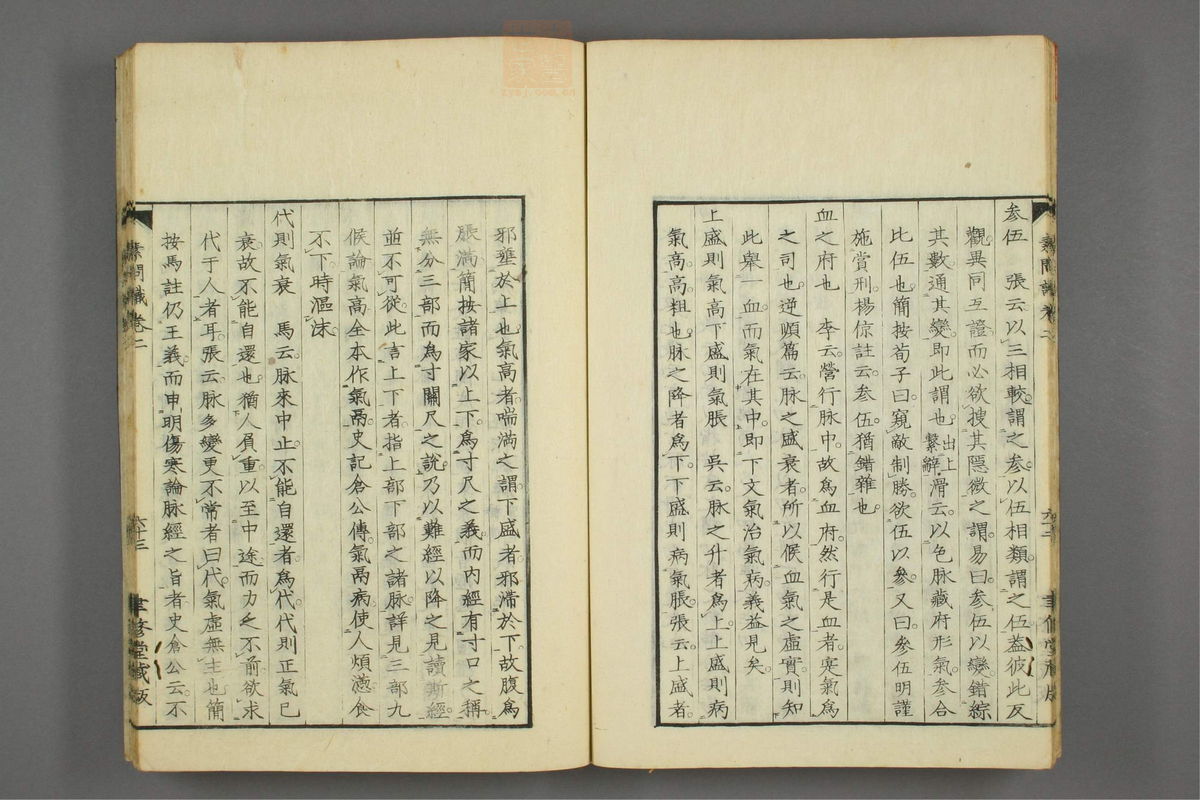 参伍　張云以三相較謂之参以伍相類謂之伍葢彼此反
觀異同互證而必欲搜其隱微之謂易曰参伍以變錯綜
其數通其變即此謂也出上繫辭滑云以色脉藏府形氣参合
比伍也簡按荀子曰窺敵制勝欲伍以參又曰參伍明謹
施賞刑楊倞註云参伍猶錯雜也
血之府也　李云營行脉中故爲血府然行是血者寔氣爲
之司也逆順篇云脉之盛衰者所以候血氣之虛實則知
此舉一血而氣在其中即下文氣治氣病義益見矣
上盛則氣高下盛則氣脹　吳云脉之升者爲上上盛則病
氣高高粗也脉之降者爲下下盛則病氣脹張云上盛者
邪壅於上也氣高者喘滿之謂下盛者邪滯於下故腹爲
脹滿簡按諸家以上下爲寸尺之義而内經有寸口之稱
無分三部而爲寸關尺之説乃以難經以降之見讀斯經
並不可從此言上下者指上部下部之諸脉詳見三部九
候論氣高全本作氣鬲史記倉公傳氣鬲病使人煩懣食
不下時漚沫
代則氣衰　馬云脉來中止不能自還者爲代代則正氣已
衰故不能自還也猶人負重以至中途而力乏不前欲求
代于人者耳張云脉多變更不常者曰代氣虛無主也簡
按馬註仍王義而申明傷寒論脉經之旨者史倉公云不
素問識卷二　六十三　聿修堂藏版